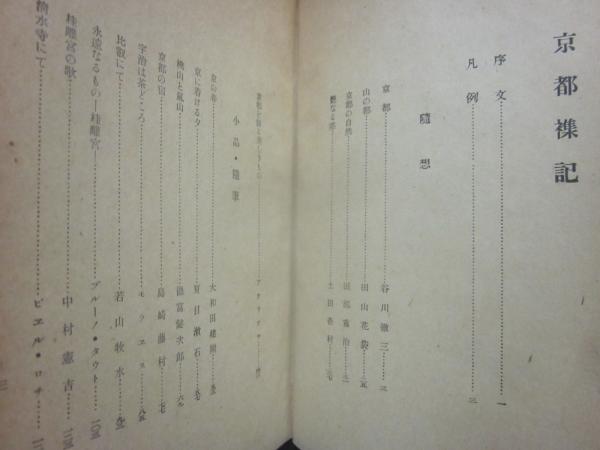 京都襍記
序文……一
凡例……三
隨想
京都……谷川徹三……三
山の都……田山花袋……
京都の自然……
艶なる都……土田杏村……
小品・隨筆
京の春……大和田建樹……
京に着ける夕……夏目漱石……
桃山と嵐山……德富健次郎……
京都の宿……島崎藤村……
宇治は茶どころ……モラエス……
比叡にて……若山牧水……
永遠なるもの―桂離宮……ブルーノ・タウト……
桂離宮の歌……中村憲吉……
淸水寺にて……ピエル・ロチ……